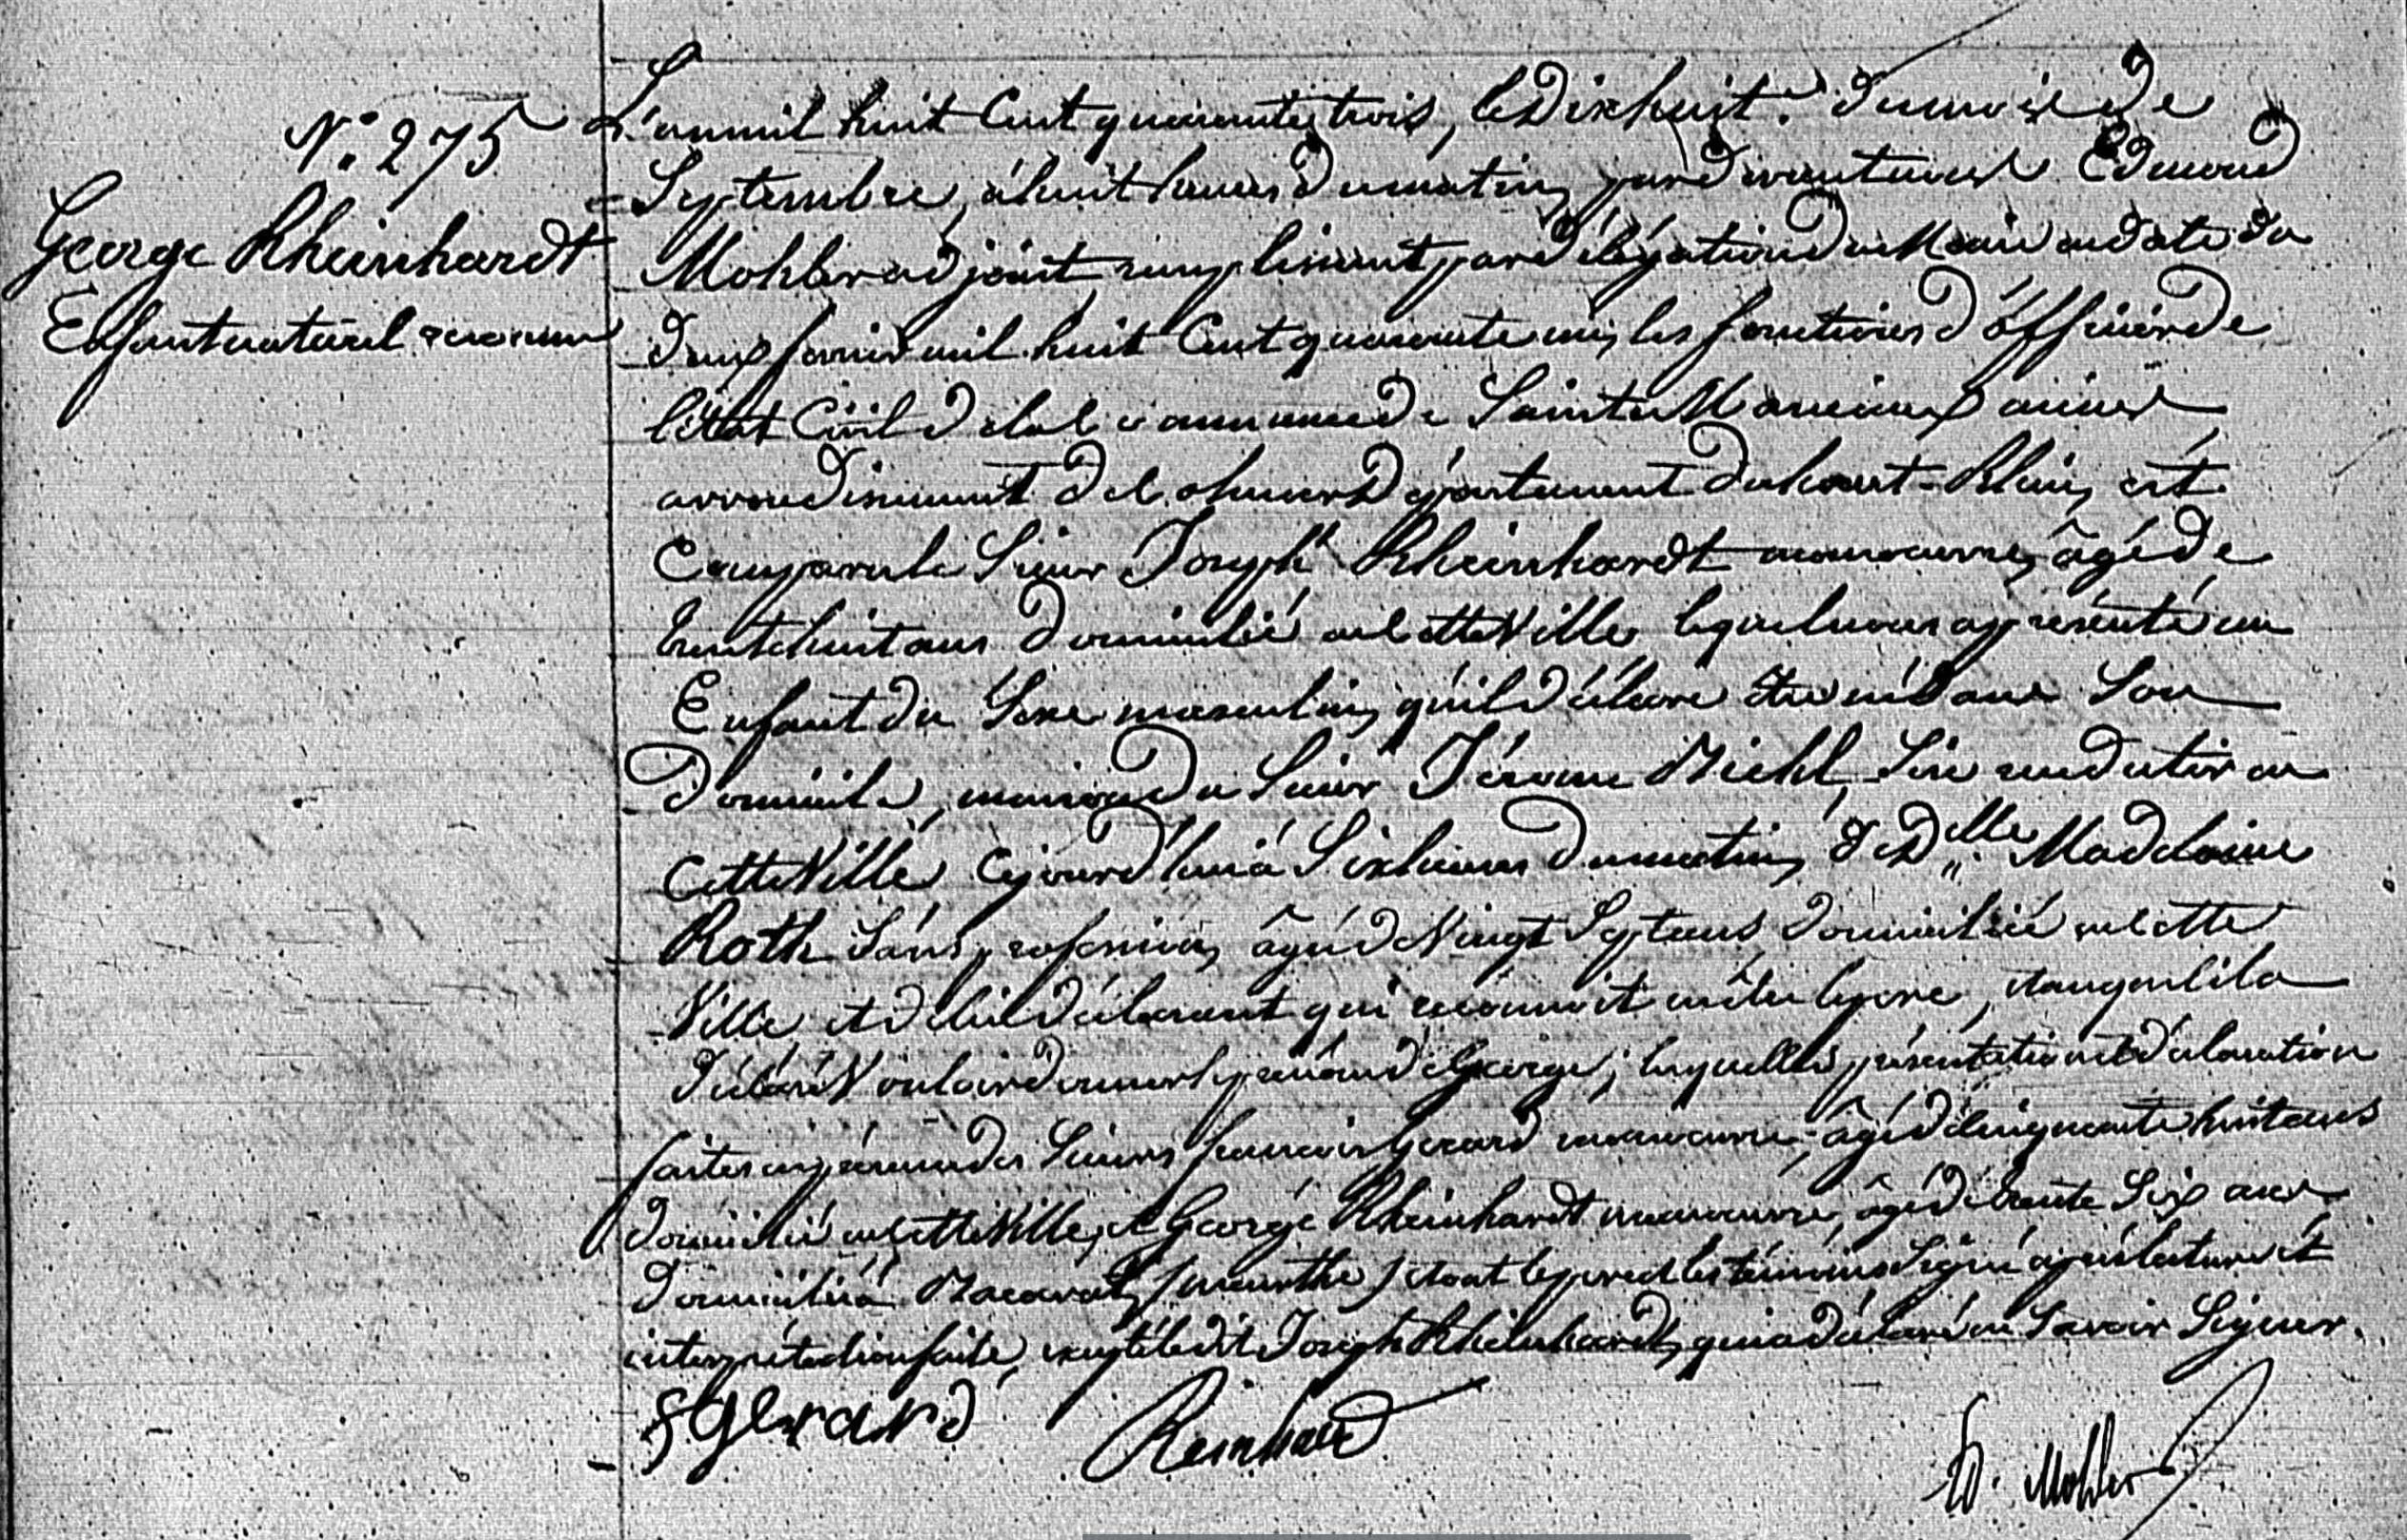 N.° 275
George Rheinhardt
Enfant naturel reconnu
L'an mil huit Cent quarante trois, le Dix huit. du mois de
Septembre, à huit heures du matin, par devant nous Edmond
Mohler adjoint remplissant par délégation du Maire en date du
deux janvier mil huit Cent quarante un, les fonctions d'officier de
l'état Civil de la commune de Sainte Marie aux mines
arrondissement de Colmar Département du haut-Rhin, est
Comparu le Sieur Joseph Rheinhardt manoeuvre, âgé de
trente huit ans domicilié en cette Ville lequel nous a présenté un
Enfant du Sexe masculin, qu'il déclare être né dans Son
domicile, maison du Sieur Jérome Diehl, Sise rue du tir en
cette Ville cejourd'hui à Six heures du matin, de D.elle Madelaine
Roth Sans profession, âgée de Vingt Sept ans, domiciliée en cette
Ville et de lui déclarant qui reconnoit en être le père, et auquel il a
déclaré Vouloir donner le prénom de George; lesquelles présentation et déclaration
faites en présence des Sieurs francois Gerard manoeuvre, âgé de Cinquante huit ans
domicilié en cette Ville, et George Rheinhardt manoeuvre, âgé de trente Six ans
domicilié à (meurthe) dont le père et les témoins Signé après lecture et
interprétation faite, excepté ledit Joseph Rheinhardt, qui a déclaré ne Savoir Signer.
F Gerard Reinhard
Ed. Mohler